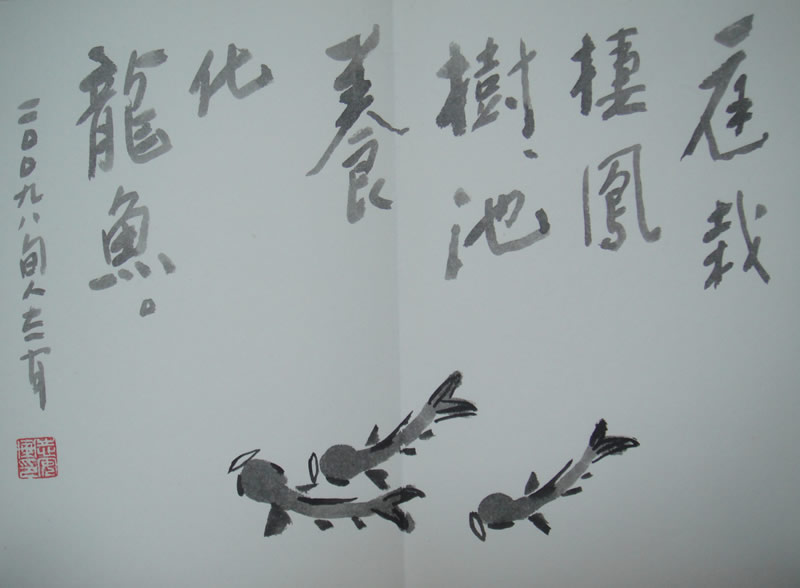 庭栽
棲鳳
樹、池
養
化
龍魚。
二〇〇九八旬人